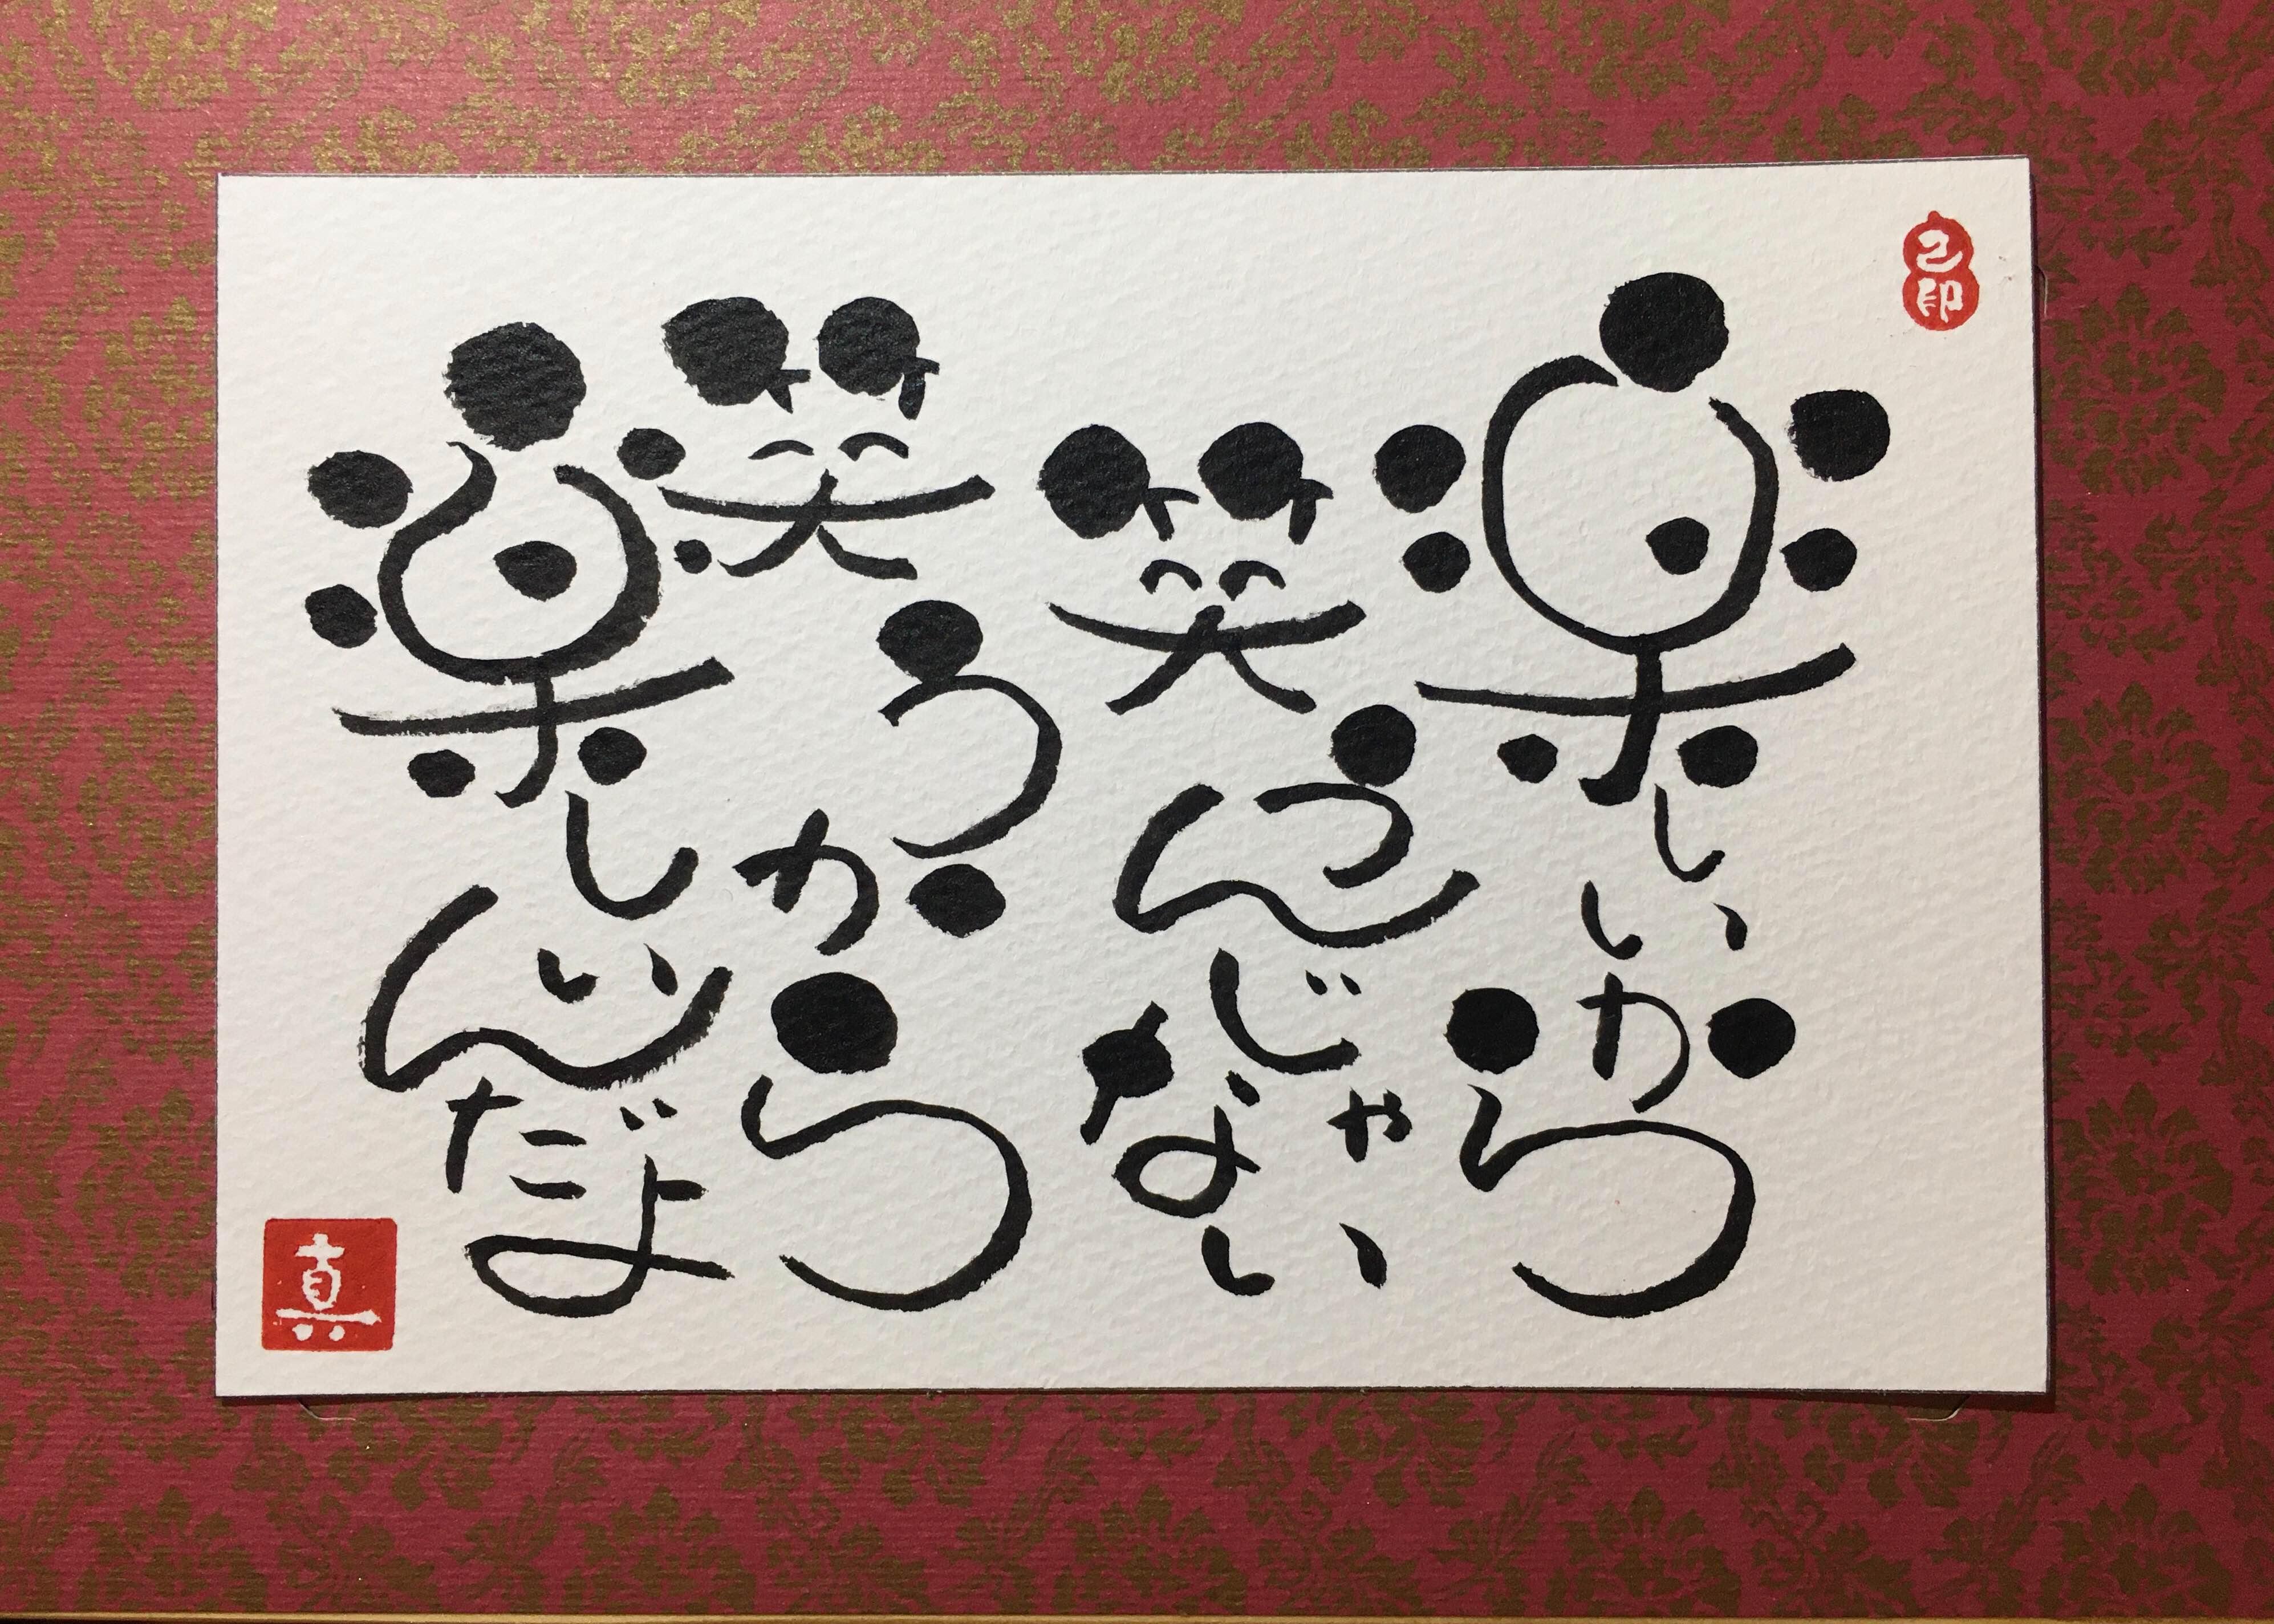 楽しいから
笑うんじゃない
笑うから
楽しいんだよ
己印
真